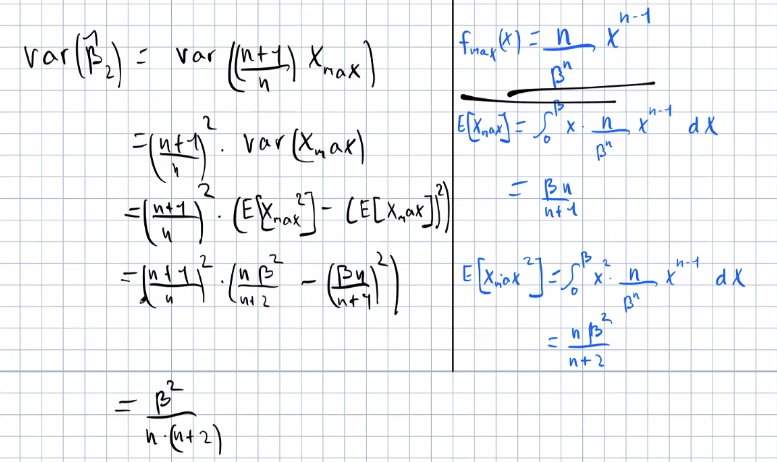 var(β̂₂) = var((n+1/n) X_max)
= (n+1/n)² · var(X_max)
= (n+1/n)² · (E[X_max²] − (E[X_max])²)
= (n+1/n)² · (nβ²/n+2 − (βn/n+1)²)
= β²/n·(n+2)
f_max(x) = n/βⁿ x^(n-1)
E[X_max] = ∫₀^β x · n/βⁿ x^(n-1) dx
= βn/n+1
E[X_max²] = ∫₀^β x² · n/βⁿ x^(n-1) dx
= nβ²/n+2